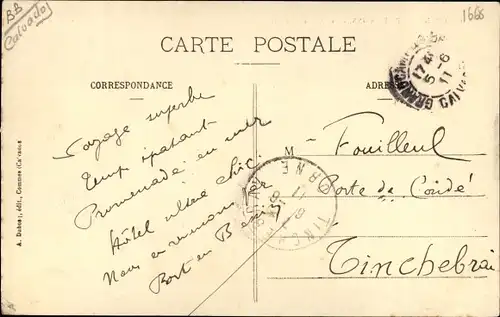 BB
Calvados
1668
CARTE POSTALE
CORRESPONDANCE
ADRESSE
GRANDCAMP
17 45
5 - 6
11
CALVADOS
Voyage superbe
temps épatant
Promenade en mer
Hôtel ultra chic.
Nous en revenons
Port en Bessin
M Fouilleul
Porte de Condé
Tinchebrai
TINCHEBRAY
ORNE
A. Dubosq, édit., Commes (Calvados